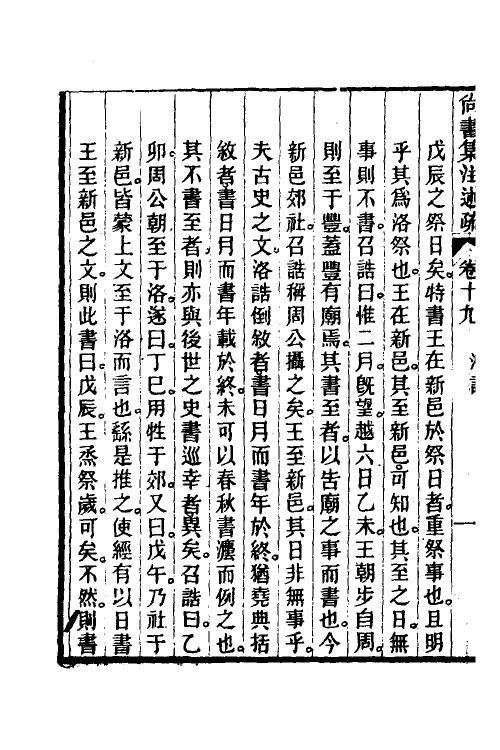 尙書集注述疏 卷十九
戊辰之祭日矣。特書王在新邑於祭日者。重祭事也。且明
乎其爲洛祭也。王在新邑。其至新邑。可知也。其至之日。無
事則不書。召誥曰惟二月。旣望越六日乙未。王朝步自周。
則至于豐。蓋豐有廟焉。其書至者。以告廟之事而書也。今
新邑郊社。召誥稱周公攝之矣。王至新邑。其日非無事乎。
夫古史之文。洛誥倒敘者。書日月而書年於終。猶堯典括
敘者。書日月而書年載於終。未可以春秋書灋而例之也。
其不書至者。則亦與後世之史書巡幸者異矣。召誥曰。乙
卯。周公朝至于洛。遂曰。丁巳。用牲于郊。又曰。戊午。乃社于
新邑。皆蒙上文至于洛而言也。繇是推之。使經有以日書
王至新邑之文。則此書曰。戊辰。王烝祭歲。可矣。不然。則書